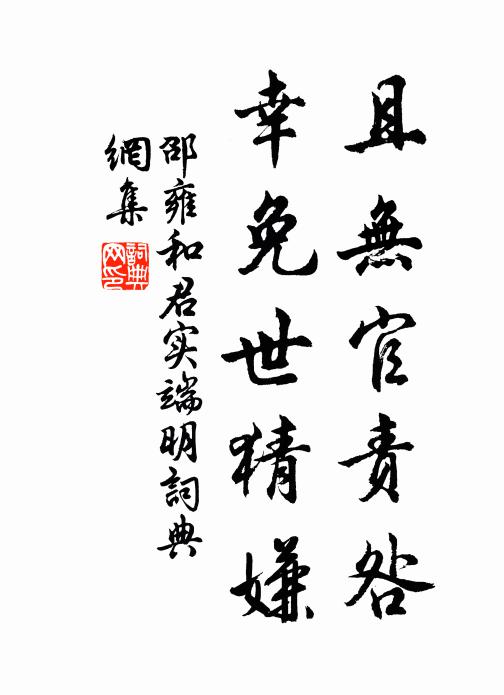 且無官責咎
幸免世猜嫌
邵雍和君实端明詞典
網集
詞典
网印